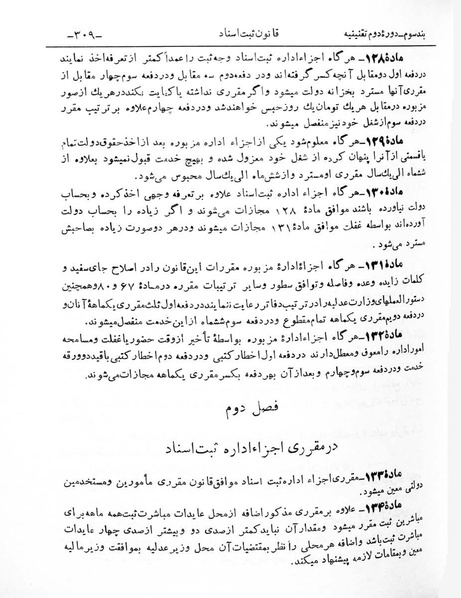 بند سوم ـ دورهٔ دوم تقنینیه قانون ثبت اسناد ـ۳۰۹ـ
مادهٔ ۱۲۸ـ هر گاه اجزاء اداره ثبت اسناد وجه ثبت را عمداً کمتر از تعرفه اخذ نمایند
در دفعه اول دو مقابل آنچه کسر گرفته‌اند و در دفعه دوم سه مقابل و در دفعه سوم چهار مقابل از
مقرری آنها مسترد بخزانه دولت میشود و اگر مقرری نداشته یا کفایت نکند در هر یك از صور
مزبوره در مقابل هر یك تومان یك روز حبس خواهند شد و در دفعه چهارم علاوه بر ترتیب مقرر
دفعه سوم از شغل خود نیز منفصل میشوند.
مادهٔ ۱۲۹ـ هر گاه معلوم شود یکی از اجزاء اداره مزبوره بعد از اخذ حقوق دولت تمام
یا قسمتی از آنرا پنهان کرده از شغل خود معزول شده و بهیچ خدمت قبول نمیشود بعلاوه از
ششماه الی یك سال مقرری او مسترد و از شش ماه الی یك سال محبوس می‌شود.
مادهٔ ۱۳۰ـ هر گاه اجزاء اداره ثبت اسناد علاوه بر تعرفه وجهی اخذ کرده و بحساب
دولت نیاورده باشند موافق مادهٔ ۱۲۸ مجازات می‌شوند و اگر زیاده را بحساب دولت
آورده‌اند بواسطه غفلت موافق مادهٔ ۱۳۱ مجازات میشوند و در هر دو صورت زیاده بصاحبش
مسترد می‌شود.
مادهٔ ۱۳۱ـ هر گاه اجزاء ادارهٔ مزبوره مقررات این قانون را در اصلاح جای سفید و
کلمات زایده وعده و فاصله و توافق سطور و سایر ترتیبات مقرره در مادهٔ ۶۷ و ۸۰ و همچنین
دستورالعملهای وزارت عدلیه را در ترتیب دفاتر رعایت ننمایند در دفعه اول ثلث مقرری یکماههٔ آنان و
در دفعه دویم مقرری یکماهه تمام مقطوع و در دفعه سوم ششماه از این خدمت منفصل میشوند.
مادهٔ ۱۳۲ـ هر گاه اجزاء ادارهٔ مزبوره بواسطهٔ تأخیر از وقت حضور یا غفلت و مسامحه
امور اداره را معوق و معطل دارند در دفعه اول اخطار کتبی و در دفعه دوم اخطار کتبی با قید در ورقه
خدمت و در دفعه سوم و چهارم و بعد از آن بهر دفعه بکسر مقرری یکماهه مجازات می‌شوند.
فصل دوم
در مقرری اجزاء اداره ثبت اسناد
مادهٔ ۱۳۳ـ مقرری اجزاء اداره ثبت اسناد موافق قانون مقرری مأمورین و مستخدمین
دولتی معین میشود.
مادهٔ ۱۳۴ـ علاوه بر مقرری مذکور اضافه از محل عایدات مباشرت ثبت همه ماهه برای
مباشرین ثبت مقرر میشود و مقدار آن نباید کمتر از صدی دو و بیشتر از صدی چهار عایدات
مباشرت ثبت باشد و اضافه هر محلی را نظر بمقتضیات آن محل وزیر عدلیه بموافقت وزیر مالیه
معین و بمقامات لازمه پیشنهاد میکند.